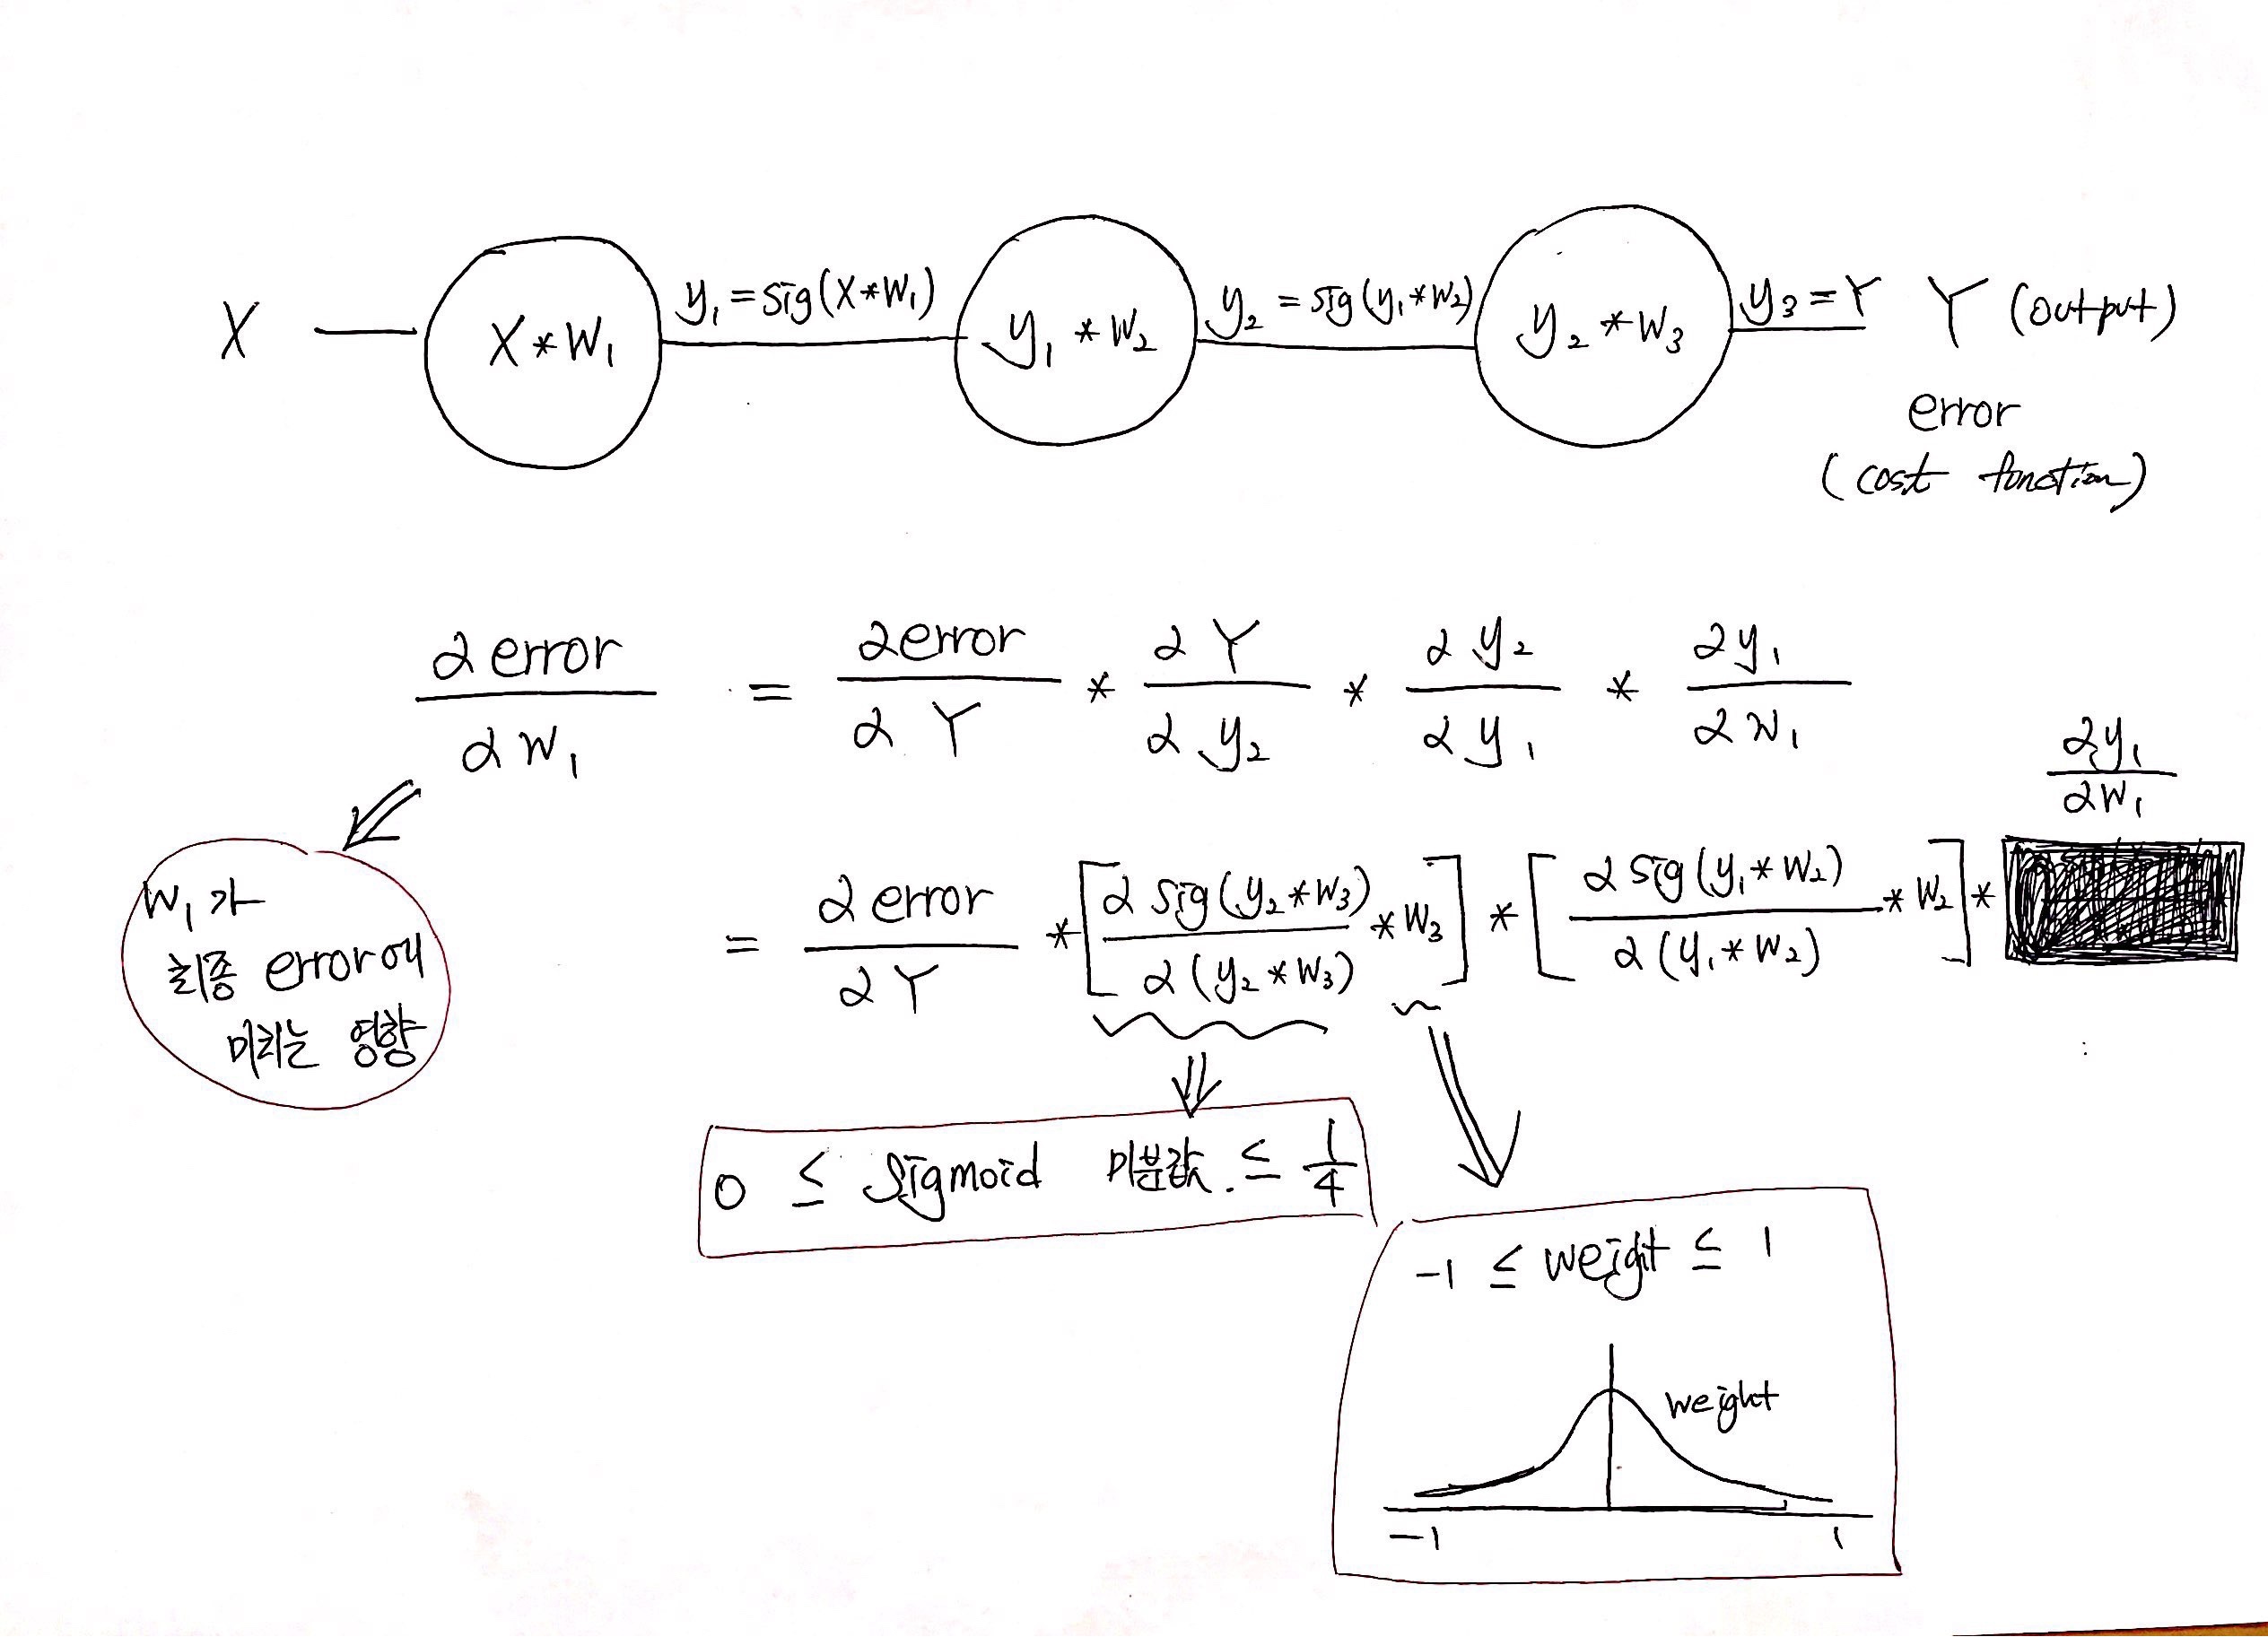 X
X * W₁
y₁ = sig(X*W₁)
y₁ * W₂
y₂ = sig(y₁*W₂)
y₂ * W₃
y₃ = Y
Y (output)
error
(cost function)
∂error/∂W₁ = ∂error/∂Y * ∂Y/∂y₂ * ∂y₂/∂y₁ * ∂y₁/∂W₁
∂y₁/∂W₁
= ∂error/∂Y * [∂sig(y₂*W₃)/∂(y₂*W₃) * W₃] * [∂sig(y₁*W₂)/∂(y₁*W₂) * W₂] *
W₁가
최종 error에
미치는 영향
0 ≤ Sigmoid 미분값. ≤ 1/4
-1 ≤ weight ≤ 1
weight
-1 1